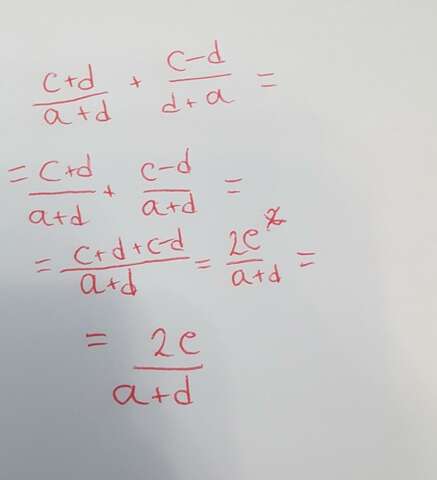 (c+d)/(a+d) + (c-d)/(d+a) =
= (c+d)/(a+d) + (c-d)/(a+d) =
= (c+d+c-d)/(a+d) = 2c/(a+d) =
= 2c/(a+d)